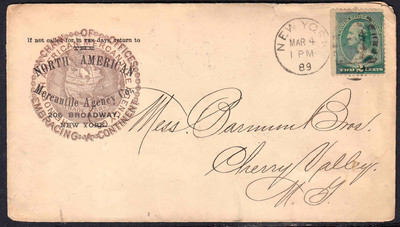 If not called for in ten days return to
THE
NORTH AMERICAN
Mercantile Agency Co.
206 BROADWAY,
NEW YORK.
CHAIN OF OFFICES
EMBRACING A CONTINENT
NEW YORK
MAR 4
1 PM
89
TWO 2 CENTS
Mess. Barnum Bros.
Cherry Valley.
N. Y.